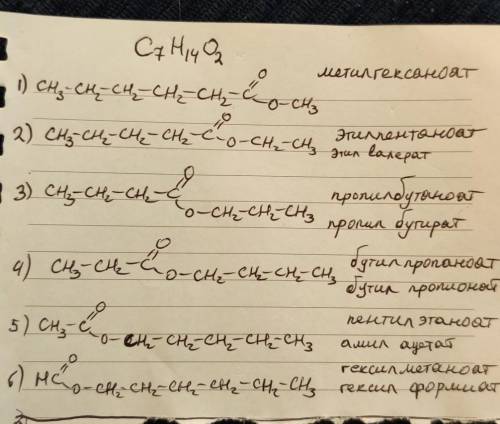 C7H14O2
1) CH3-CH2-CH2-CH2-CH2-C=O O-CH3 метилгексаноат
2) CH3-CH2-CH2-CH2-C=O O-CH2-CH3 этилпентаноат
этил валерат
3) CH3-CH2-CH2-C=O O-CH2-CH2-CH3 пропилбутаноат
пропил бутират
4) CH3-CH2-C=O O-CH2-CH2-CH2-CH3 бутил пропаноат
бутил пропионат
5) CH3-C=O O-CH2-CH2-CH2-CH2-CH3 пентил этаноат
амил ацетат
6) HC=O O-CH2-CH2-CH2-CH2-CH2-CH3 гексилметаноат
гексил формиат